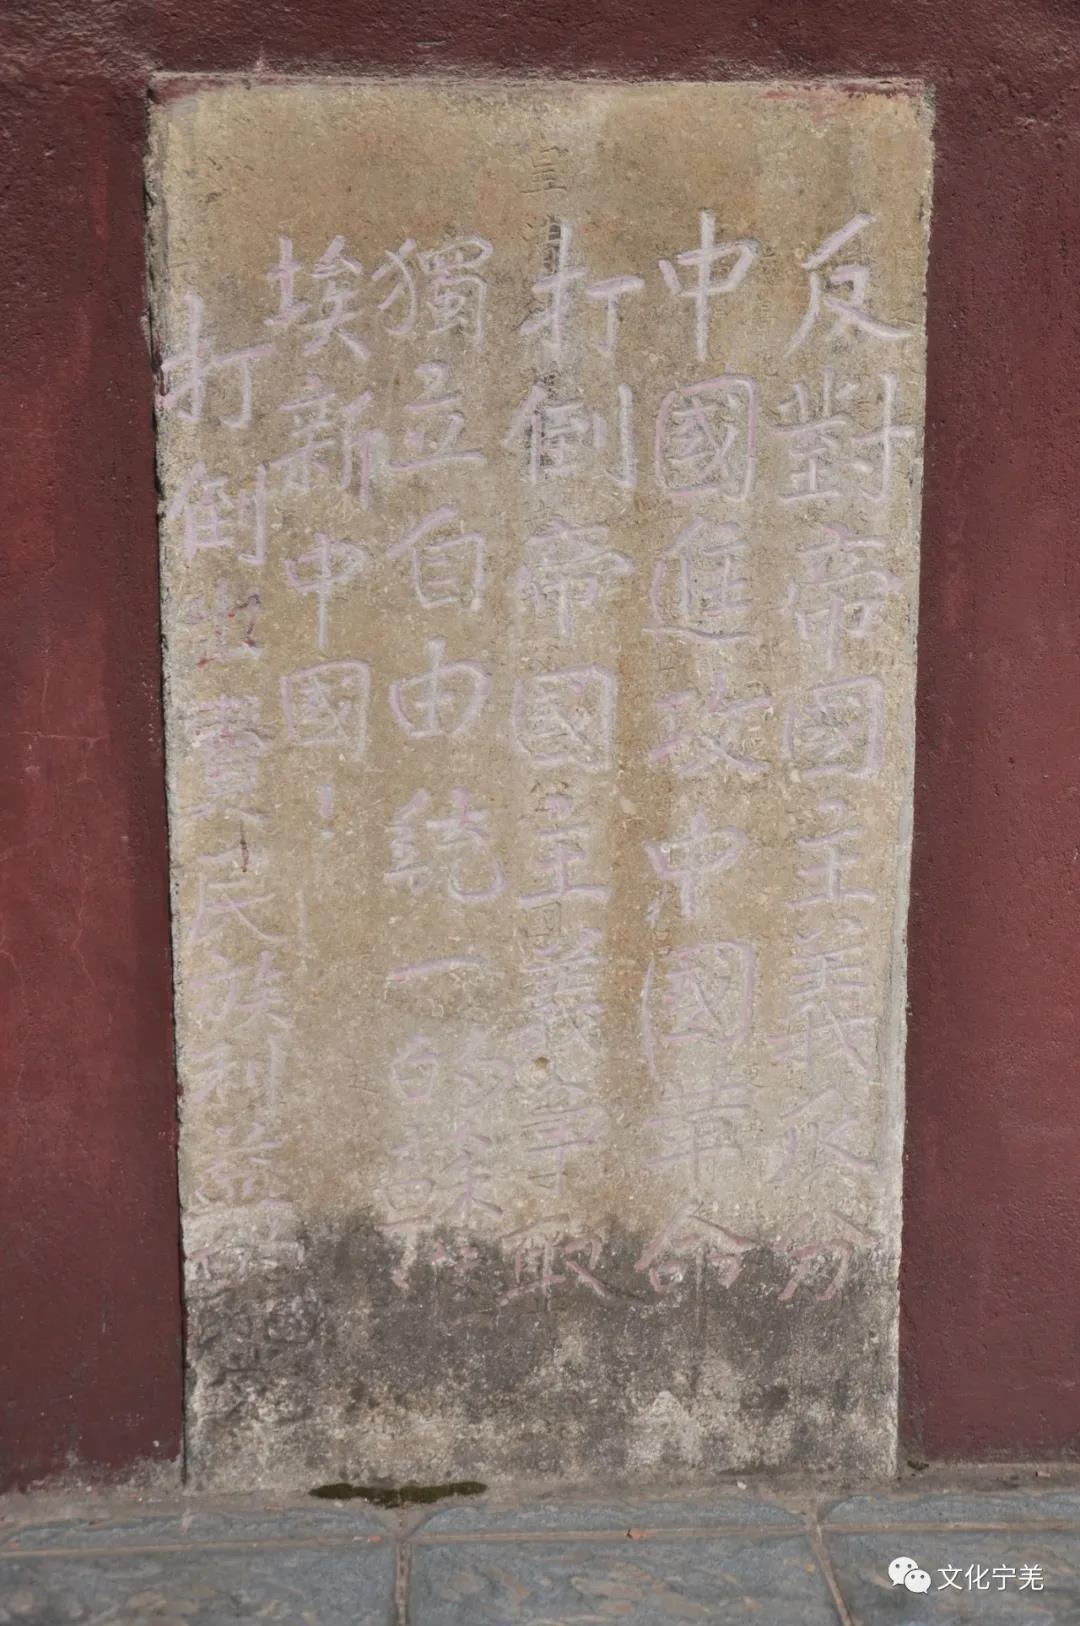 反對帝國主義瓜分
中國進攻中國革命
打倒帝國主義爭取
獨立自由統一的蘇維
埃新中國！
打倒出賣民族利益
文化宁羌